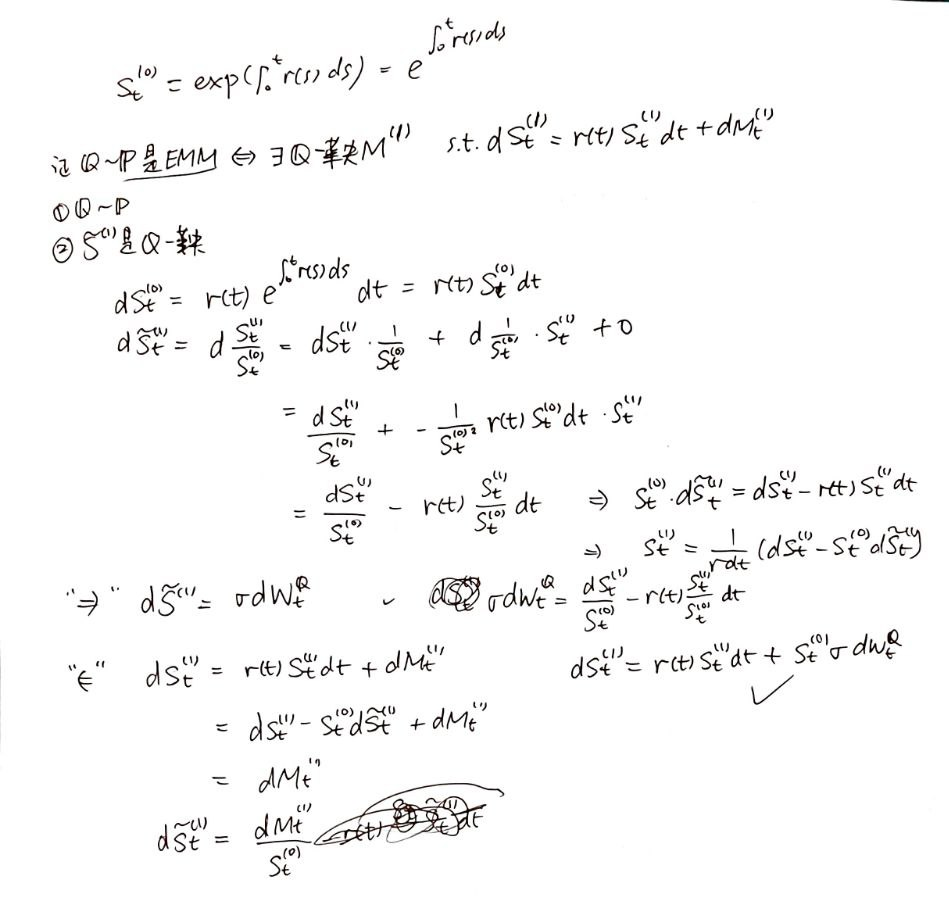 S_t^{(0)} = exp(∫_0^t r(s) ds) = e^{∫_0^t r(s) ds}
证 Q~P是EMM ⇔ ∃ Q-鞅 M^{(1)} s.t. dS_t^{(1)} = r(t) S_t^{(1)} dt + dM_t^{(1)}
① Q~P
② S̃^{(1)} 是 Q-鞅
dS_t^{(0)} = r(t) e^{∫_0^t r(s) ds} dt = r(t) S_t^{(0)} dt
dS̃_t^{(1)} = d \frac{S_t^{(1)}}{S_t^{(0)}} = dS_t^{(1)} · \frac{1}{S_t^{(0)}} + d \frac{1}{S_t^{(0)}} · S_t^{(1)} + 0
= \frac{dS_t^{(1)}}{S_t^{(0)}} + - \frac{1}{S_t^{(0)2}} r(t) S_t^{(0)} dt · S_t^{(1)}
= \frac{dS_t^{(1)}}{S_t^{(0)}} - r(t) \frac{S_t^{(1)}}{S_t^{(0)}} dt ⇒ S_t^{(0)} · dS̃_t^{(1)} = dS_t^{(1)} - r(t) S_t^{(1)} dt
⇒ S_t^{(1)} = \frac{1}{r dt} (dS_t^{(1)} - S_t^{(0)} dS̃_t^{(1)})
"⇒" dS̃^{(1)} = σdW_t^Q ✓ σdW_t^Q = \frac{dS_t^{(1)}}{S_t^{(0)}} - r(t) \frac{S_t^{(1)}}{S_t^{(0)}} dt
dS_t^{(1)} = r(t) S_t^{(1)} dt + S_t^{(0)} σ dW_t^Q ✓
"⇐" dS_t^{(1)} = r(t) S_t^{(1)} dt + dM_t^{(1)}
= dS_t^{(1)} - S_t^{(0)} dS̃_t^{(1)} + dM_t^{(1)}
= dM_t^{(1)}
dS̃_t^{(1)} = \frac{dM_t^{(1)}}{S_t^{(0)}}